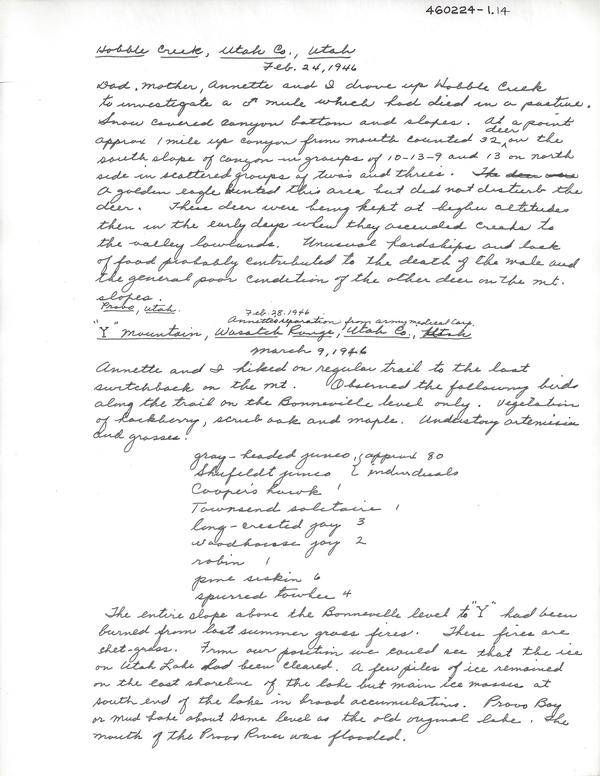 460224-1.14
Hobble Creek, Utah Co., Utah
Feb. 24, 1946
Dad, Mother, Annette and I drove up Hobble Creek
to investigate a ♂ mule which had died in a pasture.
Snow covered canyon bottom and slopes. At a point
approx 1 mile up canyon from mouth counted 32 deer on the
south slope of canyon in groups of 10-13-9 and 13 on north
side in scattered groups of twos and threes. The deer were
A golden eagle hunted this area but did not disturb the
deer. These deer were being kept at higher altitudes
then in the early days when they ascended creeks to
the valley lowlands. Unusual hardships and lack
of food probably contributed to the death of the male and
the general poor condition of the other deer on the mt.
slopes.
Provo, Utah. Feb. 28, 1946
Annette separation from army medical Corp.
"Y" Mountain, Wasatch Range, Utah Co., Utah
March 9, 1946
Annette and I hiked on regular trail to the last
switchback on the mt. Observed the following birds
along the trail on the Bonneville level only. Vegetation
of hackberry, scrub oak and maple. Understory artemisia
and grasses.
gray-headed junco, } approx 80
Shufeldt junco } individuals
Cooper's hawk 1
Townsend solitaire 1
long-crested jay 3
woodhouse jay 2
robin 1
pine siskin 6
spurred towhee 4
The entire slope above the Bonneville level to "Y" had been
burned from last summer grass fires. These fires are
chet-grass. From our position we could see that the ice
on Utah Lake had been cleared. A few piles of ice remained
on the east shoreline of the lake but main ice masses at
south end of the lake in broad accumulations. Provo Bay
or Mud Lake about same level as the old original lake. The
mouth of the Provo River was flooded.